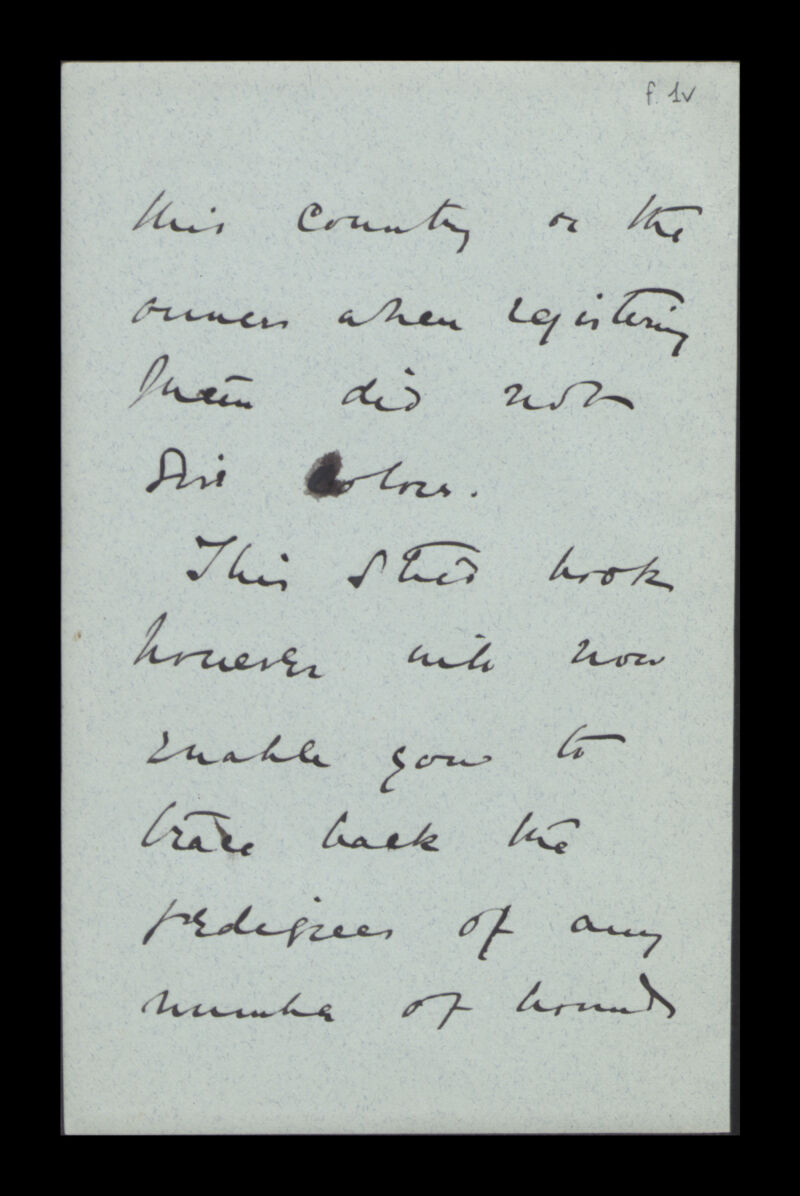 f. 1v
this country or the
owners when registering
them did not
give colour.
This Stud book
however will now
enable you to
trace back the
pedigrees of any
number of hounds